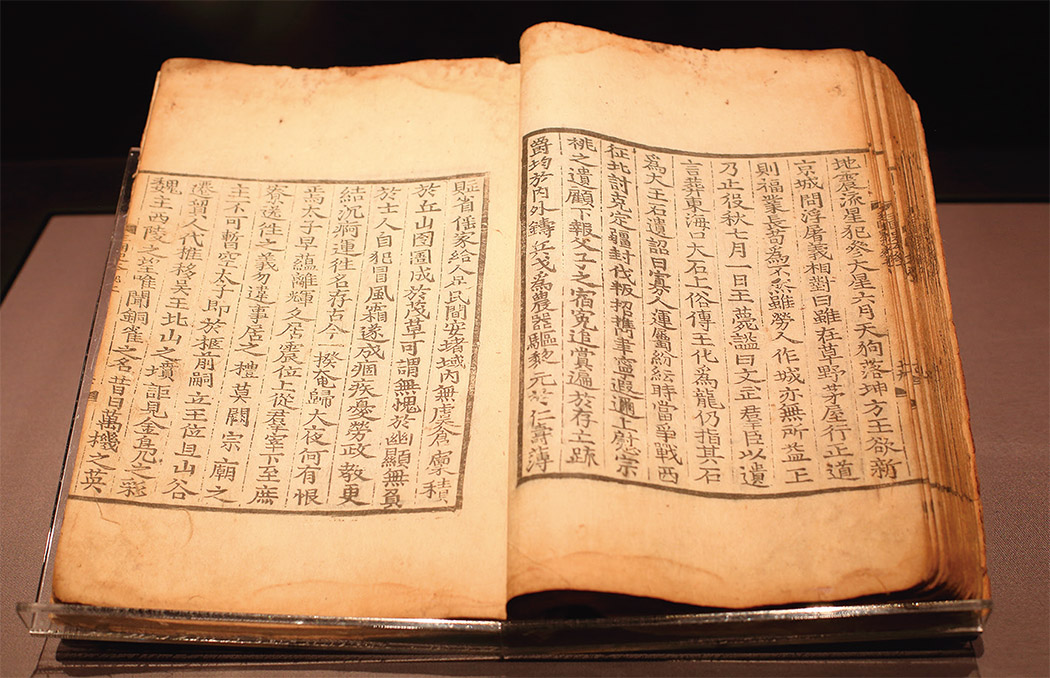 地震流星犯參大星六月天狗落坤方王欲新
京城問浮屠義相對曰雖在草野茅屋行正道
則福業長苟爲不然雖勞人作城亦無所益王
乃止役秋七月一日王薨諡曰文武羣臣以遺
言葬東海口大石上俗傳王化爲龍仍指其石
爲大王石遺詔曰寡人運屬紛紜時當爭戰西
征北討克定疆封伐叛招携聿寧遐邇上慰宗
桃之遺顧下報父子之宿寃追賞遍於存亡踈
爵均於內外鑄兵戈爲農器驅黎元於仁壽薄
賦省徭家給人足民間安堵域內無虞倉廩積
於丘山囹圄成於茂草可謂無愧於幽顯無負
於士人自犯冒風霜遂成痼疾憂勞政教更
結沉痾運往名存古今一揆奄歸大夜何有恨
焉太子早蘊離輝久居震位上從羣宰下至庶
寮送往之義勿違事居之禮莫闕宗廟之
主不可暫空太子即於柩前嗣立王位且山谷
遷貿人代推移吴王北山之墳詎見金鳧之彩
魏主西陵之望唯聞銅雀之名昔日萬機之英